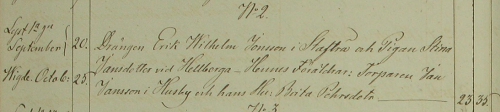 No 2.
Lyst 1a gn
September 20. Drängen Erik Wilhelm Jonsson i Staftra och Pigan Stina
Wigde Octob: 25. Jansdotter vid Hellberga - Hennes Föräldrar: Torparen Jan
Jansson i Husby och hans Hu: Brita Pehrsdotr 23 35